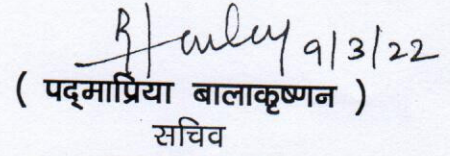 9/3/22
( पद्माप्रिया बालाकृष्णन )
सचिव